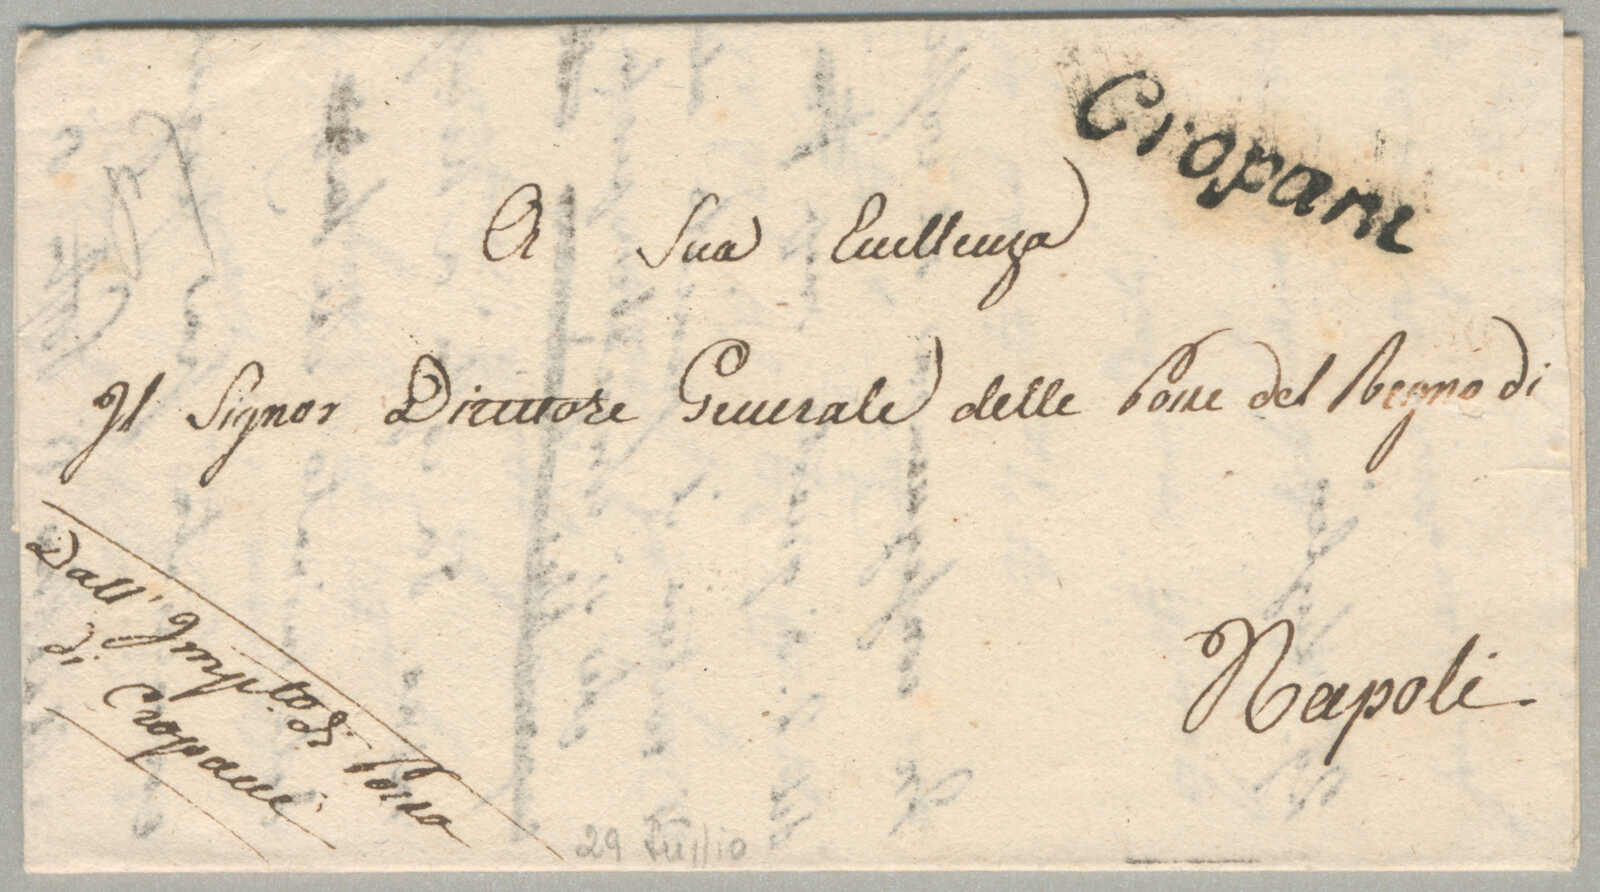 Cropani
A Sua Eccellenza
Il Signor Direttore Generale delle Poste del Regno di
Napoli
Dall' Impto di Posta
di Cropani
29